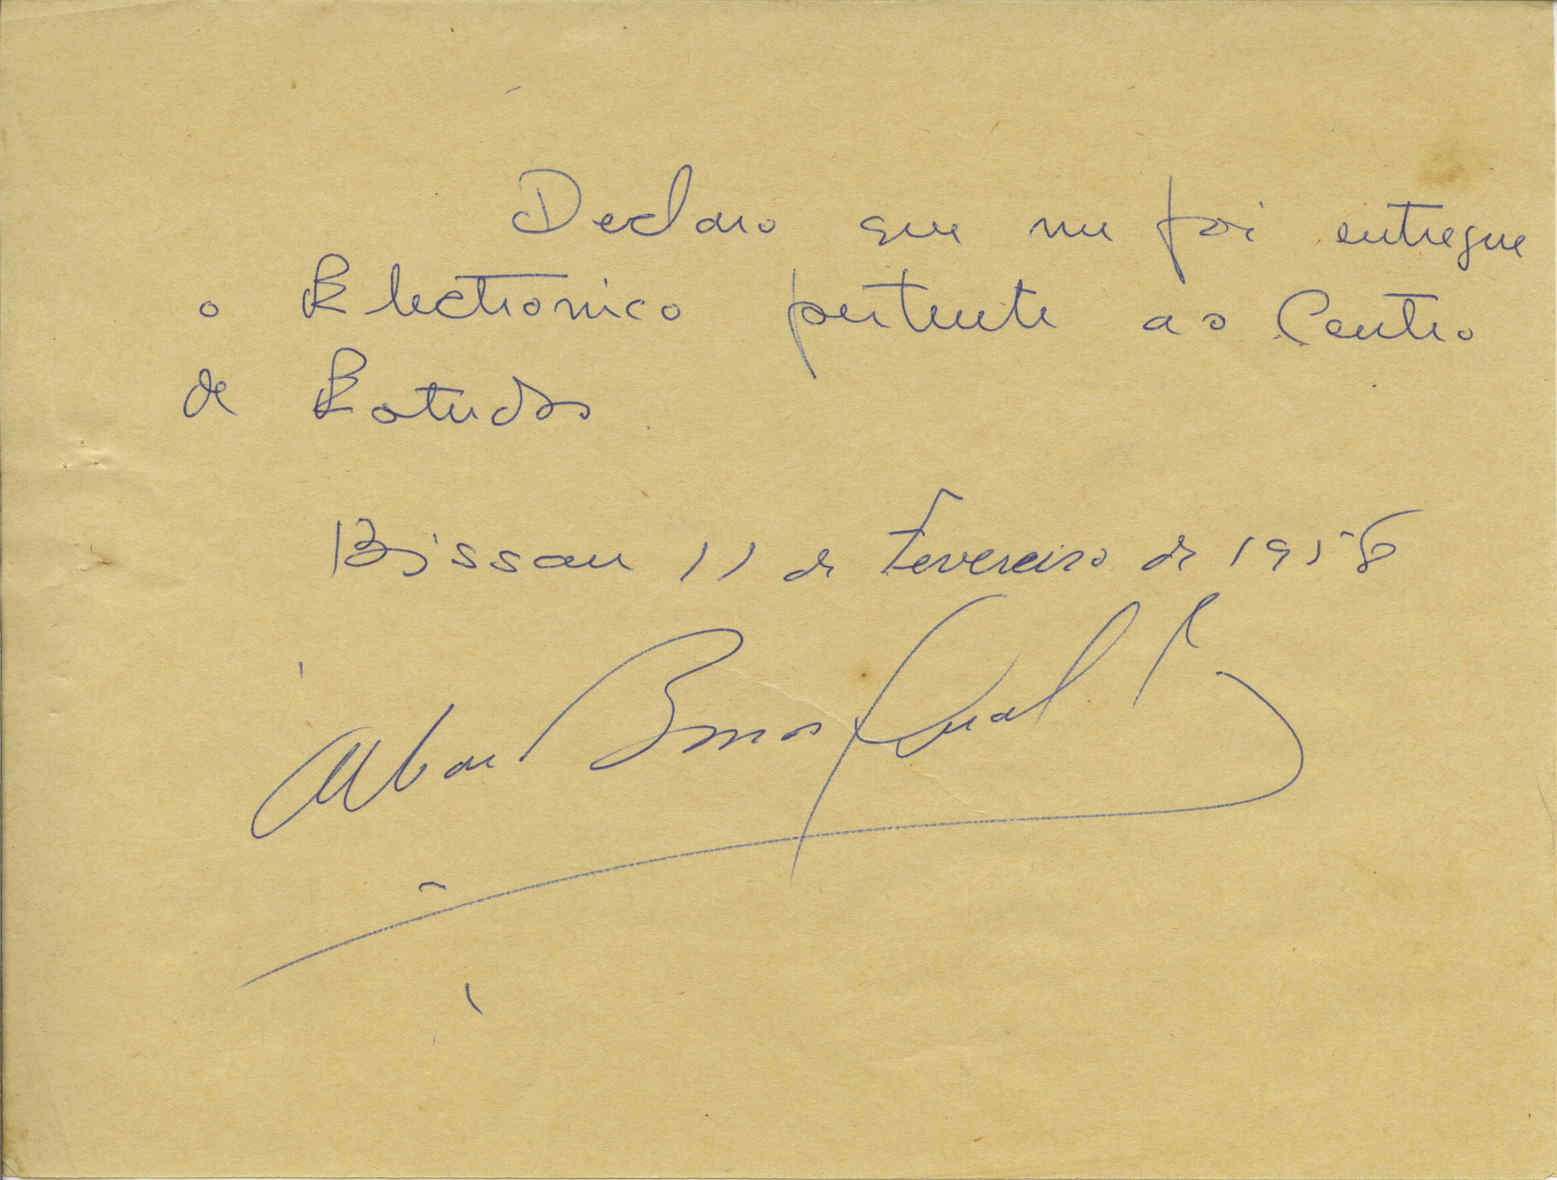 Declaro que me foi entregue
o Electronico pertente ao Centro
de Estudos
Bissau 11 de Fevereiro de 1956